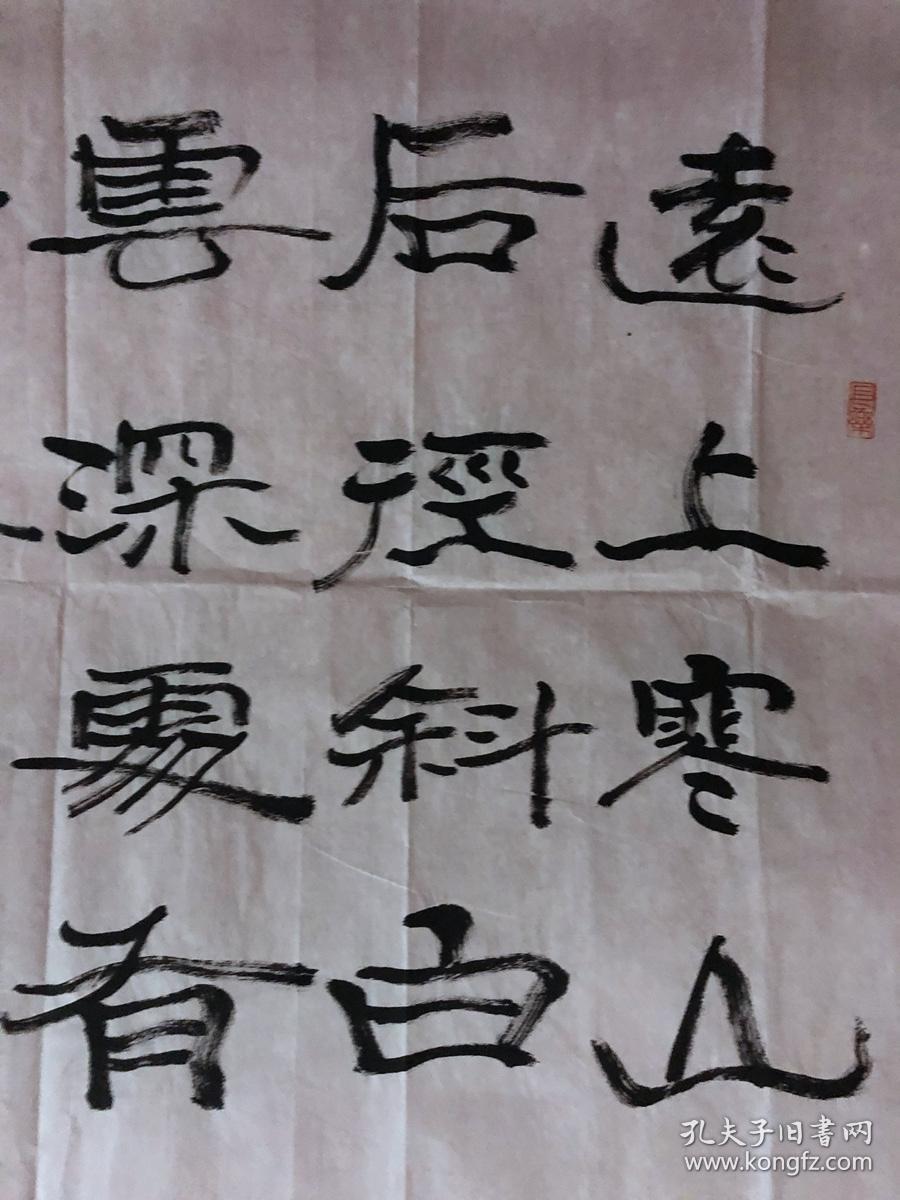 遠上寒山
后徑斜白
雲深處有
孔夫子旧書网
www.kongfz.com